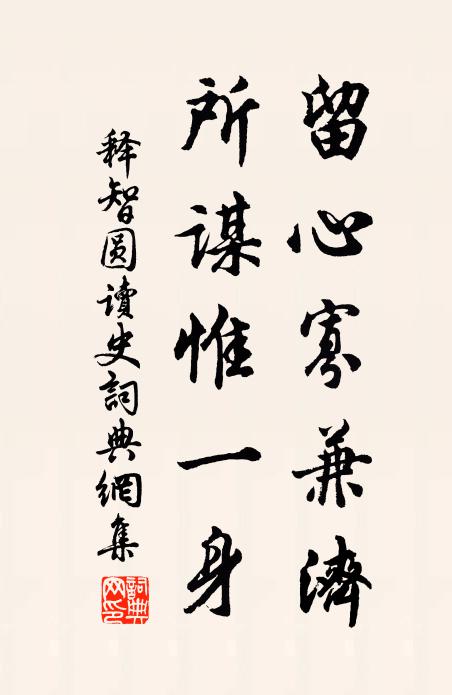 留心寡兼濟
所謀惟一身
释智圆讀史詞典網集
詞典網印